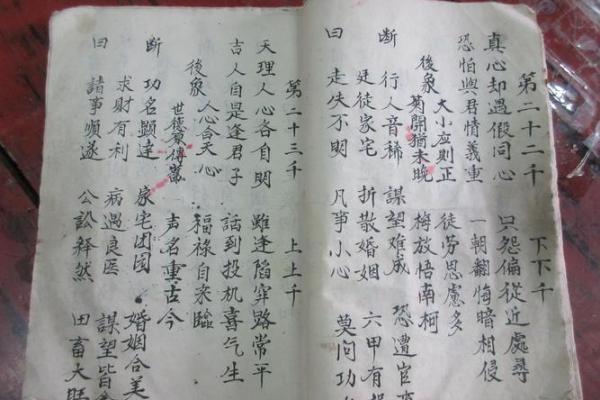 第二十二千 下下千
真心却遇假同心 只怨偏從近處尋
恐怕與君情義重 一朝翻悔暗相侵
後象 大小应則正 徒劳思慮多
菊開猶未晚 梅放悟南柯
断 行人音稀 謀望难成 恐遭官
廷徒家宅 折散婚姻 六甲有
曰 走失不明 凡事小心 莫问功
第二十三千 上上千
天理人心各自明 雖逢陷穽路常平
吉人自是逢君子 話到投机喜气生
後象 人心合天心 福禄自来臨
世德家傳 声名重古今
断 功名顕達 家宅团圆 婚姻合美
求财有利 病遇良医 謀望皆
曰 諸事順遂 公訟释然 田畜大旺